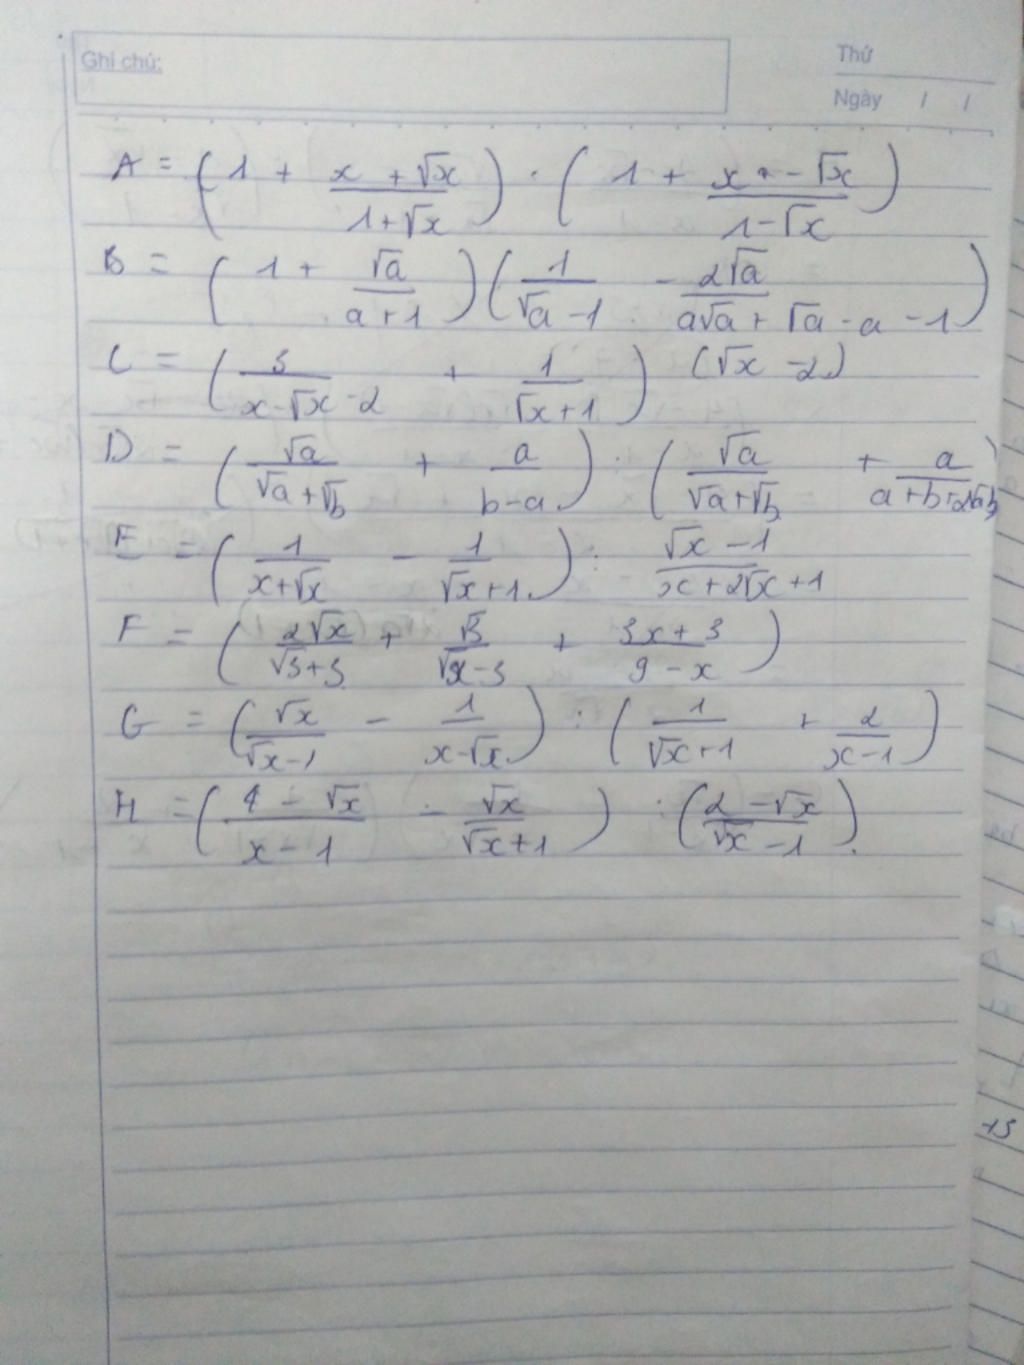 Ghi chú:
Thứ
Ngày / /
A = (1 + (x + √x)/(1+√x)) . (1 + (x - √x)/(1-√x))
B = (1 + √a/(a+1)) (1/(√a-1) - 2√a/(a√a + √a - a - 1))
C = (3/(x-√x-2) + 1/(√x+1)) (√x - 2)
D = (√a/(√a+√b) + a/(b-a)) : (√a/(√a+√b) + a/(a+b+2√ab))
E = (1/(x+√x) - 1/(√x+1)) : (√x - 1)/(x+2√x+1)
F = (2√x/(√3+3) + √3/(√x-3) + (3x+3)/(9-x))
G = (√x/(√x-1) - 1/(x-√x)) : (1/(√x+1) + 2/(x-1))
H = ((4 - √x)/(x-1) - √x/(√x+1)) : ((2-√x)/(√x-1)).